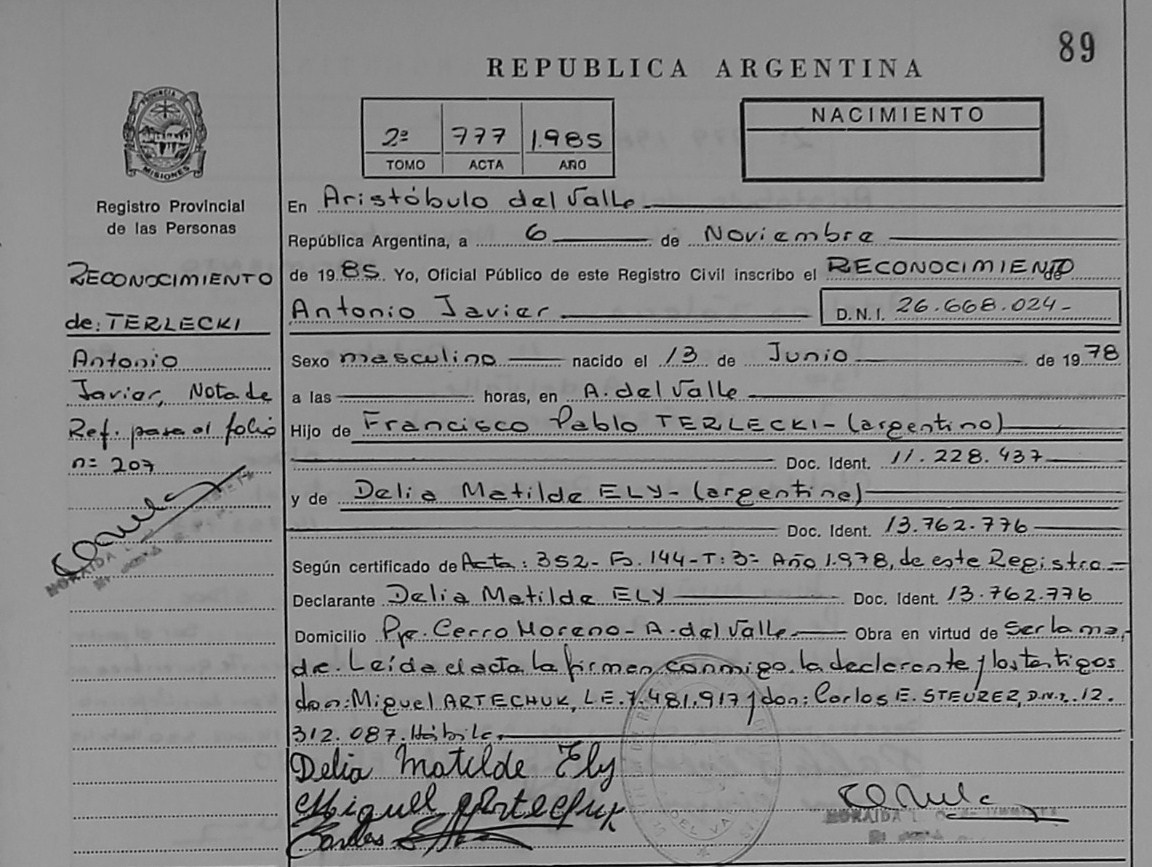 89
REPUBLICA ARGENTINA
PROVINCIA DE MISIONES
2º 777 1.985
TOMO ACTA AÑO
NACIMIENTO
Registro Provincial
de las Personas
RECONOCIMIENTO
de: TERLECKI
Antonio
Javier, Nota de
Ref. pase al folio
nº 207
En Aristóbulo del Valle
República Argentina, a 6 de Noviembre
de 1985. Yo, Oficial Público de este Registro Civil inscribo el RECONOCIMIENTO de
Antonio Javier D.N.I. 26.668.024-
Sexo masculino nacido el 13 de Junio de 1978
a las horas, en A. del Valle
Hijo de Francisco Pablo TERLECKI- (argentino)
Doc. Ident. 11.228.437
y de Delia Matilde ELY- (argentina)
Doc. Ident. 13.762.776
Según certificado de Acta: 352- Fº. 144- T: 3º Año 1.978, de este Registro.-
Declarante Delia Matilde ELY Doc. Ident. 13.762.776
Domicilio Pje. Cerro Moreno- A. del Valle Obra en virtud de ser la ma-
dre. Leída el acta la firman conmigo, la declarante y los testigos
don: Miguel ARTECHUK, L.E. 7.481.917 y don: Carlos E. STEURER, D.N.I. 12.
312.087. Hábiles.
Delia Matilde Ely
Miguel Artechuk
Carlos
NORAIDA
DEL VALLE